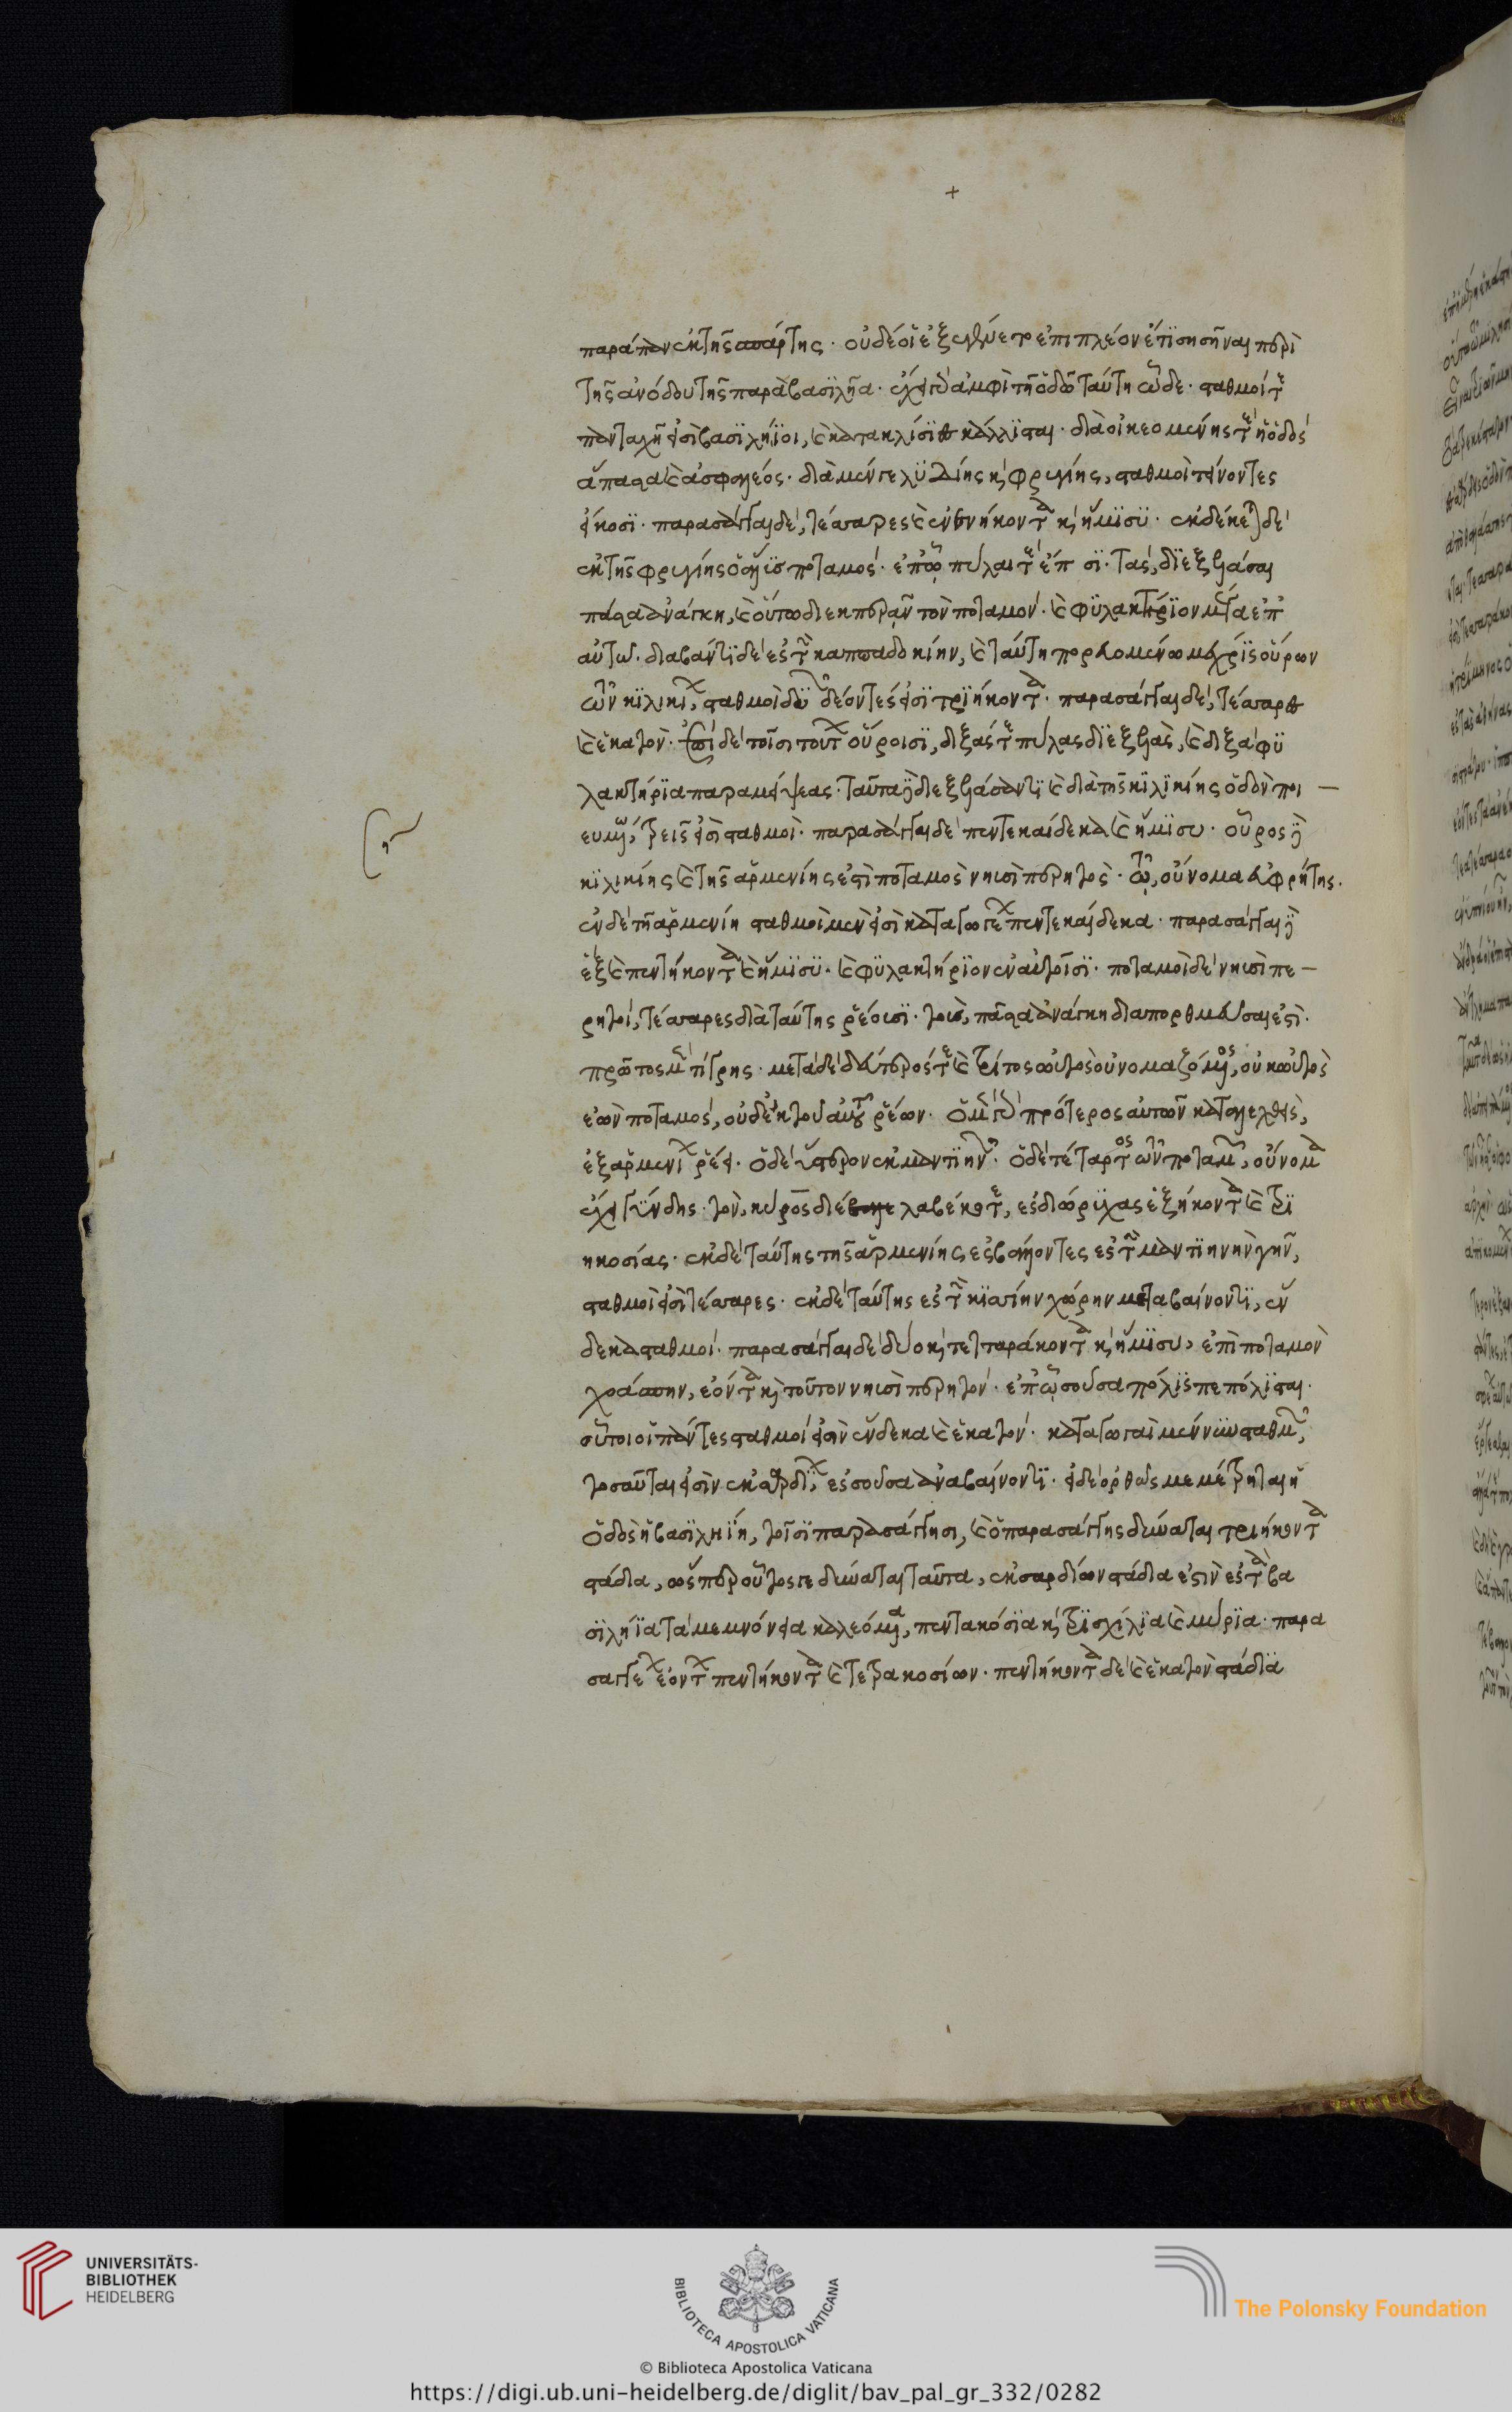 +
παράπαν ἐκ τῆς σπάρτης · οὐδέ οἱ ἐξεγένετο ἐπιπλέον ἔτϊ σημῆναι περὶ
τῆς ἀνόδου τῆς παρὰ βασιλῆα · ἔχει γὰρ ἀμφὶ τῆ ὁδῶ ταύτη ὧδε · σταθμοί τε
πανταχῆ εἰσὶ βασιλήϊοι, καὶ κατακλίσϊες κάλλϊσται · διὰ οἰκεομένης τὲ ἡ ὁδός
ἅπασα καὶ ἀσφαλέος · διὰ μέν γε λυδίης καὶ φρυγίης, σταθμοὶ τείνοντες
εἴκοσϊ · παρασάγγαι δέ, τέσσαρες καὶ ἐνενήκοντα καὶ ἥμϊσϋ · ἐκδέκεται δέ
ἐκ τῆς φρυγίης ὁ ἅλϊς ποταμός · ἐπ' ὧ πύλαι τὲ ἔπεισι · τὰς, διεξελάσαι
πᾶσα ἀνάγκη, καὶ οὕτω διεκπερᾶν τὸν ποταμόν · καὶ φϋλακτήρϊον μέγα ἐπ'
αὐτῶ · διαβάντϊ δέ ἐς τὴν καππαδοκίην, καὶ ταύτη πορευομένω μέχρϊς οὔρων
τῶν κϊλικίων, σταθμοὶ δυῶν δέοντές εἰσϊ τρϊήκοντα · παρασάγγαι δέ, τέσσαρες
καὶ ἑκατὸν · ἐπὶ δὲ τοῖσι τούτων οὔροισϊ, διξάς τε πύλας διεξελᾶς, καὶ διξὰ φϋ
λακτήρϊα παραμείψεας · ταῦτα δὲ διεξελάσαντϊ καὶ διὰ τῆς κϊλϊκίης ὁδὸν ποι
ευμένω, τρεῖς εἰσὶ σταθμοὶ · παρασάγγαι δὲ πεντεκαίδεκα καὶ ἥμϊσυ · οὖρος δὲ
κϊλικίης καὶ τῆς ἀρμενίης ἐστὶ ποταμὸς νηυσὶ περητὸς · τῶ, οὔνομα εὐφρήτης.
ἐν δὲ τῆ ἀρμενίη σταθμοὶ μὲν εἰσὶ καταγωγέων πεντεκαίδεκα · παρασάγγαι δὲ
ἓξ καὶ πεντήκοντα καὶ ἥμϊσϋ · καὶ φϋλακτήρϊον ἐν αὐτοῖσϊ · ποταμοὶ δὲ νηυσὶ πε
ρητοί, τέσσαρες διὰ ταύτης ῥέουσι · τοὺς, πᾶσα ἀνάγκη διαπορθμεῦσαι ἐστὶ ·
πρῶτος μὲν τίγρης · μετὰ δὲ δεύτερός τὲ καὶ τρίτος ωὐτὸς οὐνομαζόμενος, οὐκ ωὐτὸς
ἐὼν ποταμός, οὐδ' ἐκ τοῦ αὐτοῦ ῥέων · ὁ μὲν γὰρ πρότερος αὐτῶν καταλεχθεὶς,
ἐξ ἀρμενίων ῥέει · ὁ δὲ ὕστερον ἐκ μαντϊηνῶν · ὁ δὲ τέταρτος τῶν ποταμῶν, οὔνομα
ἔχει γύνδης · τὸν, κῦρος διέλαβέ κοτε, ἐς διώρϊχας ἑξήκοντα καὶ τρϊ
ηκοσίας · ἐκ δὲ ταύτης τῆς ἀρμενίης ἐσβάλλοντες ἐς τὴν μαντϊηνὴν γῆν,
σταθμοὶ εἰσὶ τέσσαρες · ἐκ δὲ ταύτης ἐς τὴν κϊσσίην χώρην μεταβαίνοντϊ, ἕν
δεκα σταθμοί · παρασάγγαι δὲ δύο καὶ τεσσαράκοντα καὶ ἥμϊσυ, ἐπὶ ποταμὸν
χοάσπην, ἐόντα καὶ τοῦτον νηυσὶ περητόν · ἐπ' ὧ σοῦσα πόλϊς πεπόλϊσται ·
οὗτοι οἱ πάντες σταθμοί εἰσὶν ἕνδεκα καὶ ἑκατόν · καταγωγαὶ μέν νυν σταθμῶν,
τοσαῦται εἰσὶν ἐκ σαρδίων ἐς σοῦσα ἀναβαίνοντϊ · εἰ δὲ ὀρθῶς μεμέτρηται ἡ
ὁδὸς ἡ βασϊληΐη, τοῖσϊ παρασάγγησι, καὶ ὁ παρασάγγης δύναται τριήκοντα
στάδια, ὥσπερ οὗτός γε δύναται ταῦτα, ἐκ σαρδίων στάδια ἐστὶν ἐς τὰ βα
σϊλήϊα τὰ μεμνόνεια καλεόμενα, πεντακόσϊα καὶ τρϊσχίλϊα καὶ μύρϊα · παρα
σαγγέων ἐόντων πεντήκοντα καὶ τετρακοσίων · πεντήκοντα δὲ καὶ ἑκατὸν στάδϊα
UNIVERSITÄTS-
BIBLIOTHEK
HEIDELBERG
BIBLIOTECA APOSTOLICA VATICANA
The Polonsky Foundation
© Biblioteca Apostolica Vaticana
https://digi.ub.uni-heidelberg.de/diglit/bav_pal_gr_332/0282